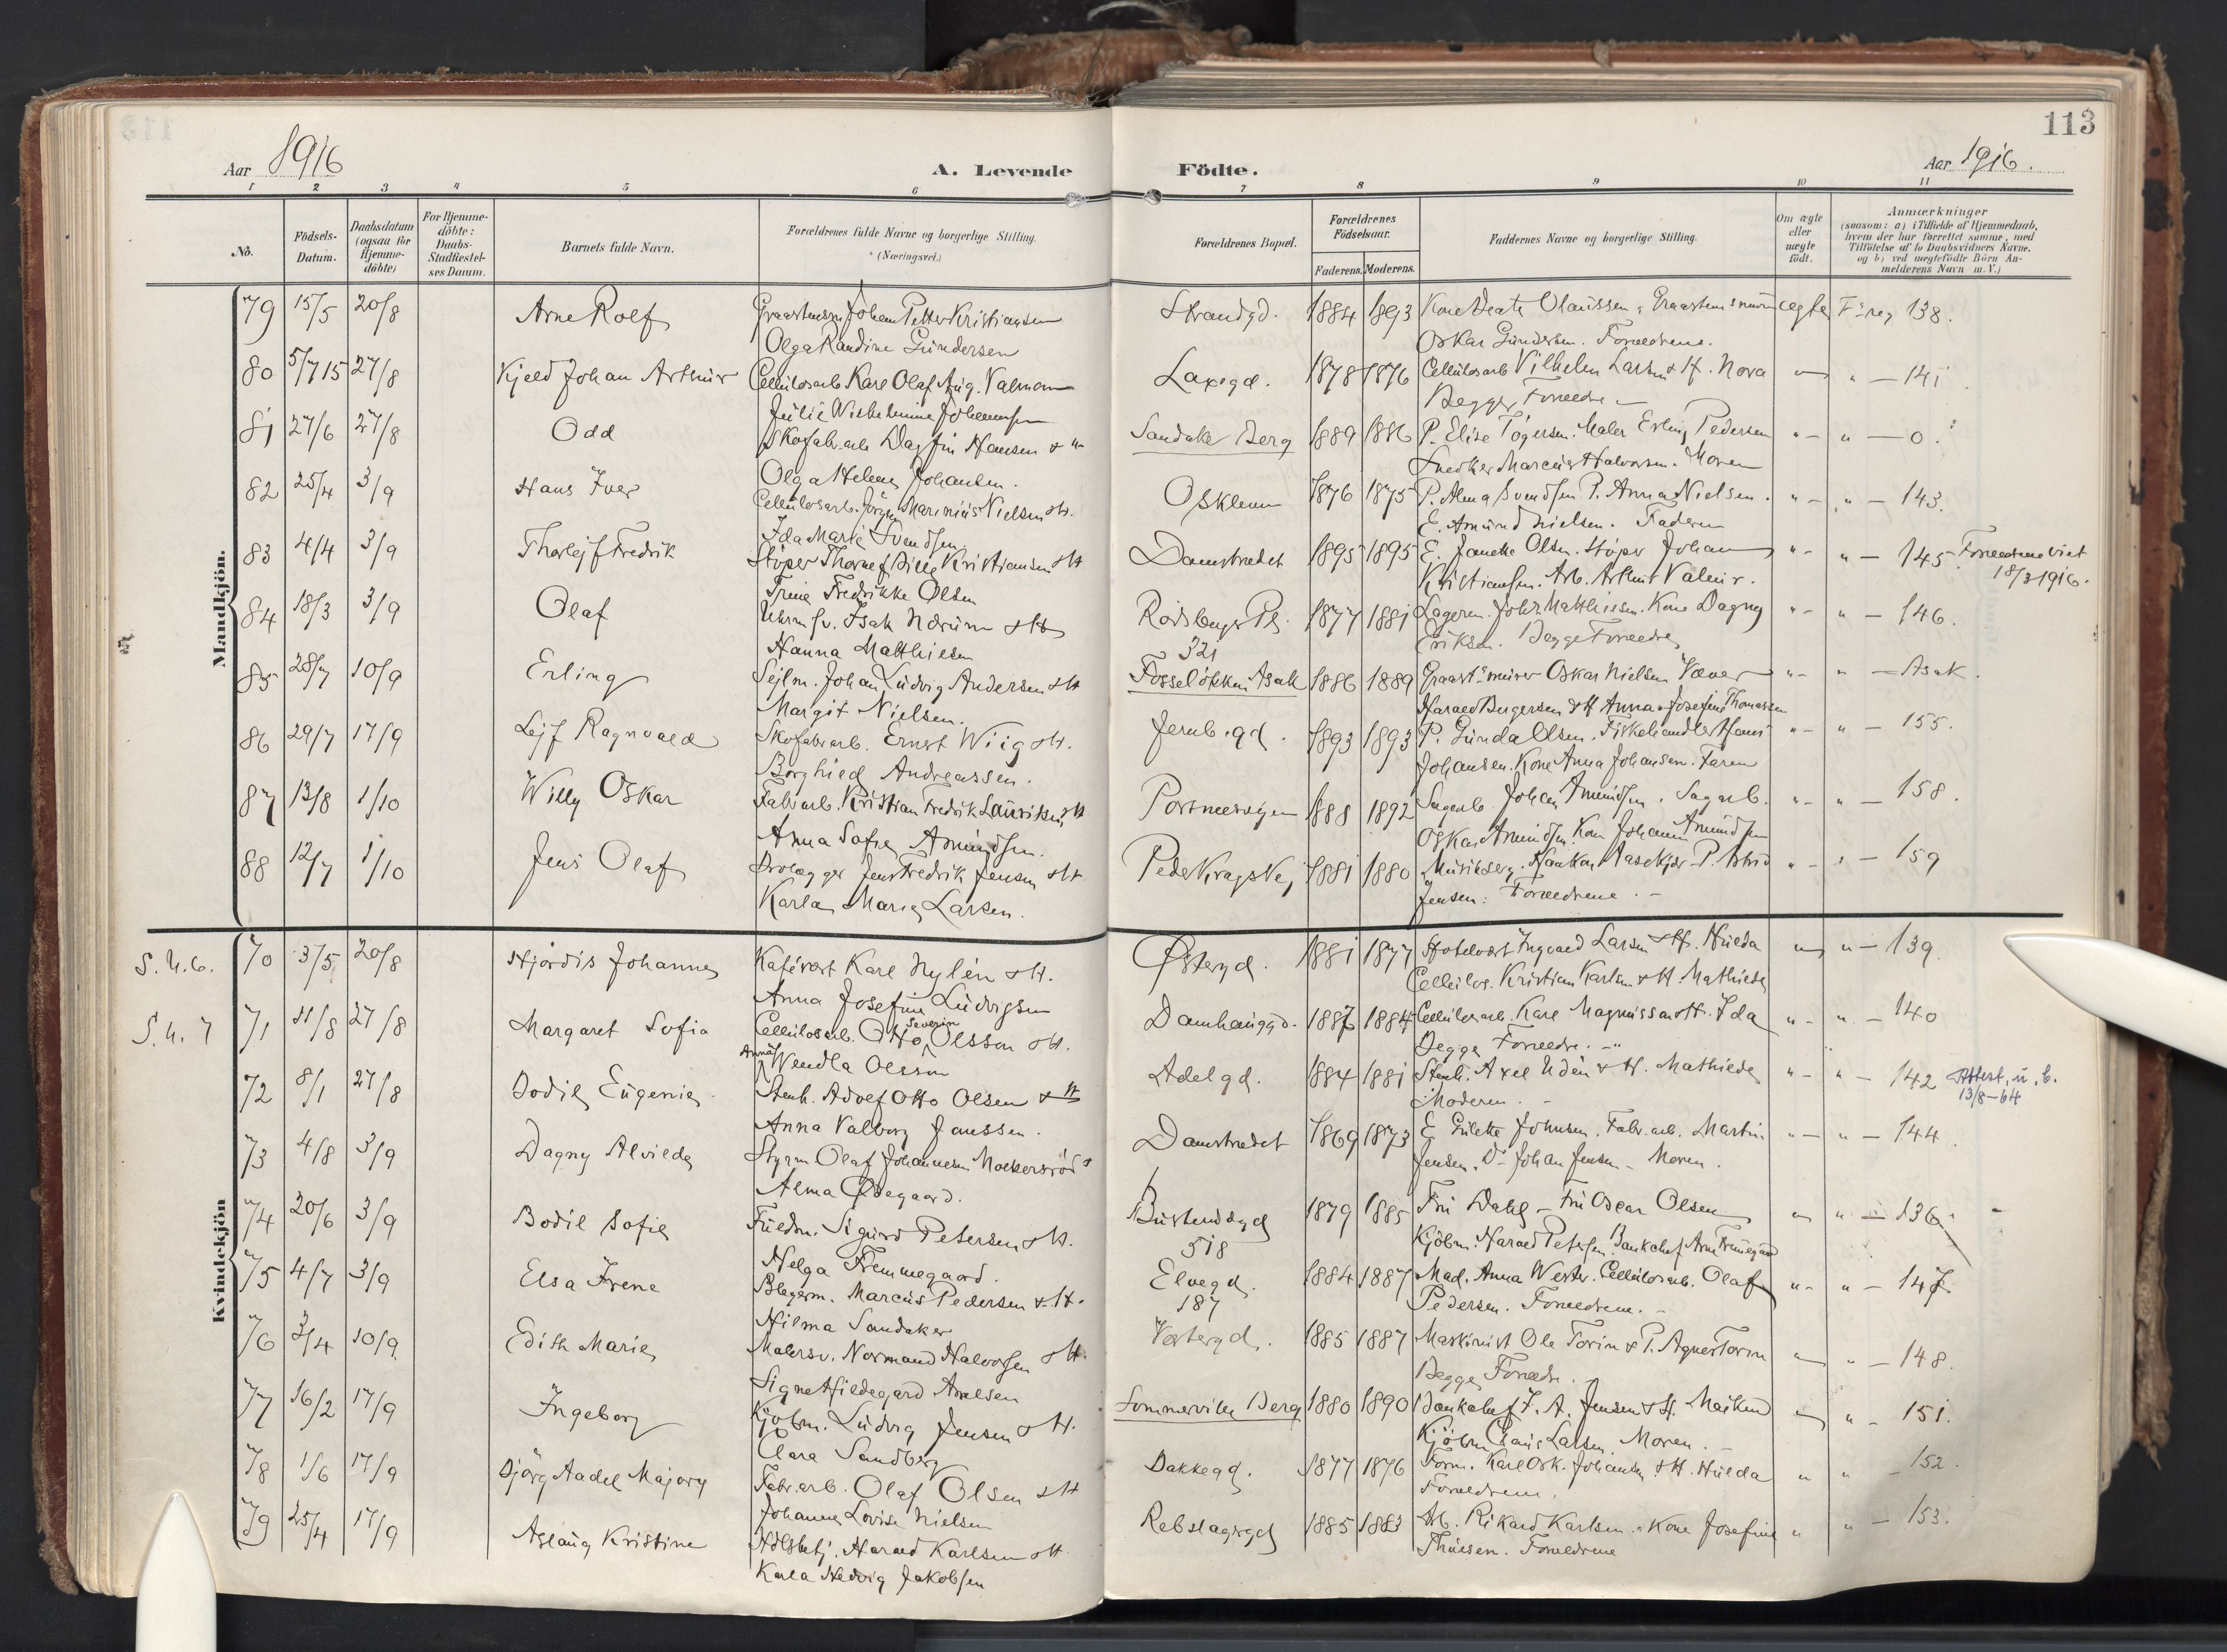 113
Aar 1916
A. Levende Födte.
Aar 1916.
1 2 3 4 5 6 7 8 9 10 11
No.
Födsels-Datum.
Daabsdatum (ogsaa for Hjemme-döbte)
For Hjemme-döbte: Daabs-Stadfæstel-ses Datum.
Barnets fulde Navn.
Forældrenes fulde Navne og borgerlige Stilling.
* (Næringsvei.)
Forældrenes Bopæl.
Forældrenes Födselsaar.
Faderens. Moderens.
Faddernes Navne og borgerlige Stilling.
Om ægte eller uægte födt.
Anmærkninger
(saasom: a) i Tilfælde af Hjemmedaab,
hvem der har forrettet samme, med
Tilföielse af to Daabsvidners Navne.
og b) ved uægtefödte Börn An-
melderens Navn m. V.)
Mandkjön.
79 15/5 20/8 Arne Rolf Johan Petter Kristiansen Strandgd. 1884 1893 Olaussen ægte 138.
Olga Randine Gundersen Oskar Gundersen. Forældrene.
80 5/7 15 27/8 Kjeld Johan Arthur Cellulosarb Karl Olaf Aug. Valmann Laxegd. 1878 1876 Cellulosarb Vilhelm Larsen & H. Nora " 141
Julie Wilhelmine Johannesen Begge Forældre
81 27/6 27/8 Odd Skofabr.arb Dagfin Hansen & H Sandaker Berg 1889 1886 P. Elise Tögersen. Maler Erling Pedersen " " 0.
Olga Helene Johansen. Snedker Marcus Halvorsen. Moren
82 25/4 3/9 Hans Iver Cellulosarb. Jörgen Marinius Nielsen & H. Osklem 1876 1875 P. Alma Svendsen P. Anna Nielsen. " " 143.
Ida Marie Svendsen. E. Amund Nielsen. Faderen
83 4/4 3/9 Thorlejf Fredrik Stöper Kristiansen & H Damstrædet 1895 1895 E. Olsen. Stöper Johan " " 145 Forældrene viet
Trine Fredrikke Olsen Kristiansen. Arb. Arthur Valmir. 18/3 1916.
84 18/3 3/9 Olaf Isak Nærum & H Rödsberg Pl. 1877 1881 Matthiesen. Kone Dagny " " 146.
Hanna Matthiesen 321 Eriksen. Begge Forældre
85 28/7 10/9 Erling Sejlm. Johan Ludvig Andersen & H Fosselökken Asak 1886 1889 Oskar Nielsen Væver " " Asak.
Margit Nielsen. Harald Birgersen & H Anna Josefine Thomassen
86 29/7 17/9 Lejf Ragnvald Skofabr.arb. Ernst Wiig & H. Jernb.gd. 1893 1893 P. Gunda Olsen. Fiskehandler Hans " " 155.
Borghild Andreassen. Johansen. Kone Anna Johansen. Faren
87 13/8 1/10 Willy Oskar Fabr.arb. Kristian Fredrik Lauritsen & H 1888 1892 Sagarb. Johan Amundsen. Sagarb. " " 158.
Anna Sofie Amundsen. Oskar Amundsen. Kone Johanne Amundsen
88 12/7 1/10 Jens Olaf Brolægger Jens Fredrik Jensen & H Peder Krags Vej 1881 1880 Haakon P. Astrid " " 159
Karla Marie Larsen. Jensen. Forældrene.
Kvindekjön
S.U.6. 70 3/5 20/8 Hjördis Johanne Kafévert Karl Nylén & H. Østergd. 1881 1877 Hotelvert Ingvald Larsen & H. Hulda " 139.
Anna Josefine Ludvigsen Cellulos. Kristian Karlsen & H. Mathilde
S.U.7 71 11/8 27/8 Margaret Sofia Cellulosarb. Otto Severin Olsson & H. Damhauggd. 1887 1884 Cellulosarb. Karl Magnussen & H. Ida " " 140
Anna Wendla Olsson Begge Forældre.
72 8/1 27/8 Bodil Eugenie Stenh. Adolf Otto Olsen & H Adelgd. 1884 1881 Stenh. Axel Udén & H. Mathilde " " 142 Attest. u. b.
Anna Valborg Janssen. Moderen. 13/8-64
73 4/8 3/9 Dagny Alvilde Styrm Olaf Johannesen Damstrædet 1869 1873 E Gulette Johnsen. Fabr.arb. Martin " " 144.
Alma Ødegaard. Jensen. Do Johan Jensen. Moren.
74 20/6 3/9 Bodil Sofie Fuldm. Sigurd Petersen & H. 1879 1885 Fru Dahl - Fru Oscar Olsen " " 136
Helga Fremmegaard. 518 Kjöbm. Harald Petersen. Bankchef Arne Fremmegaard
75 4/7 3/9 Elsa Irene Marcus Pedersen & H. Elvegd. 1884 1887 Mad. Anna Wester. Cellulosarb. Olaf " " 147
Hilma Sandaker 187 Pedersen. Forældrene.
76 3/4 10/9 Edith Marie Malersv. Normand Halvorsen & H. Vestergd. 1885 1887 Maskinist Ole Torin & P. Agnes Torin " 148.
Signe Hildegard Amlsen Begge Forældre.
77 16/2 17/9 Ingeborg Kjöbm. Ludvig Jensen & H. Sommervilen Berg 1880 1890 Bankchef J. A. Jensen & H. " 151.
Clara Sandberg Kjöbm. Claus Larsen. Moren.
78 1/6 17/9 Björg Aadel Majory Fabr.arb. Olaf Olsen & H Bakkegd. 1877 1876 Form. Karl Osk. Johansen & H. Hulda " " 152.
Johanne Lovise Nielsen Forældrene.
79 25/4 17/9 Aslaug Kristine Harald Karlsen & H. Rebslagergd 1885 1883 Arb. Rikard Karlsen. Kone Josefine " " 153.
Karla Hedvig Jakobsen Thuesen. Forældrene